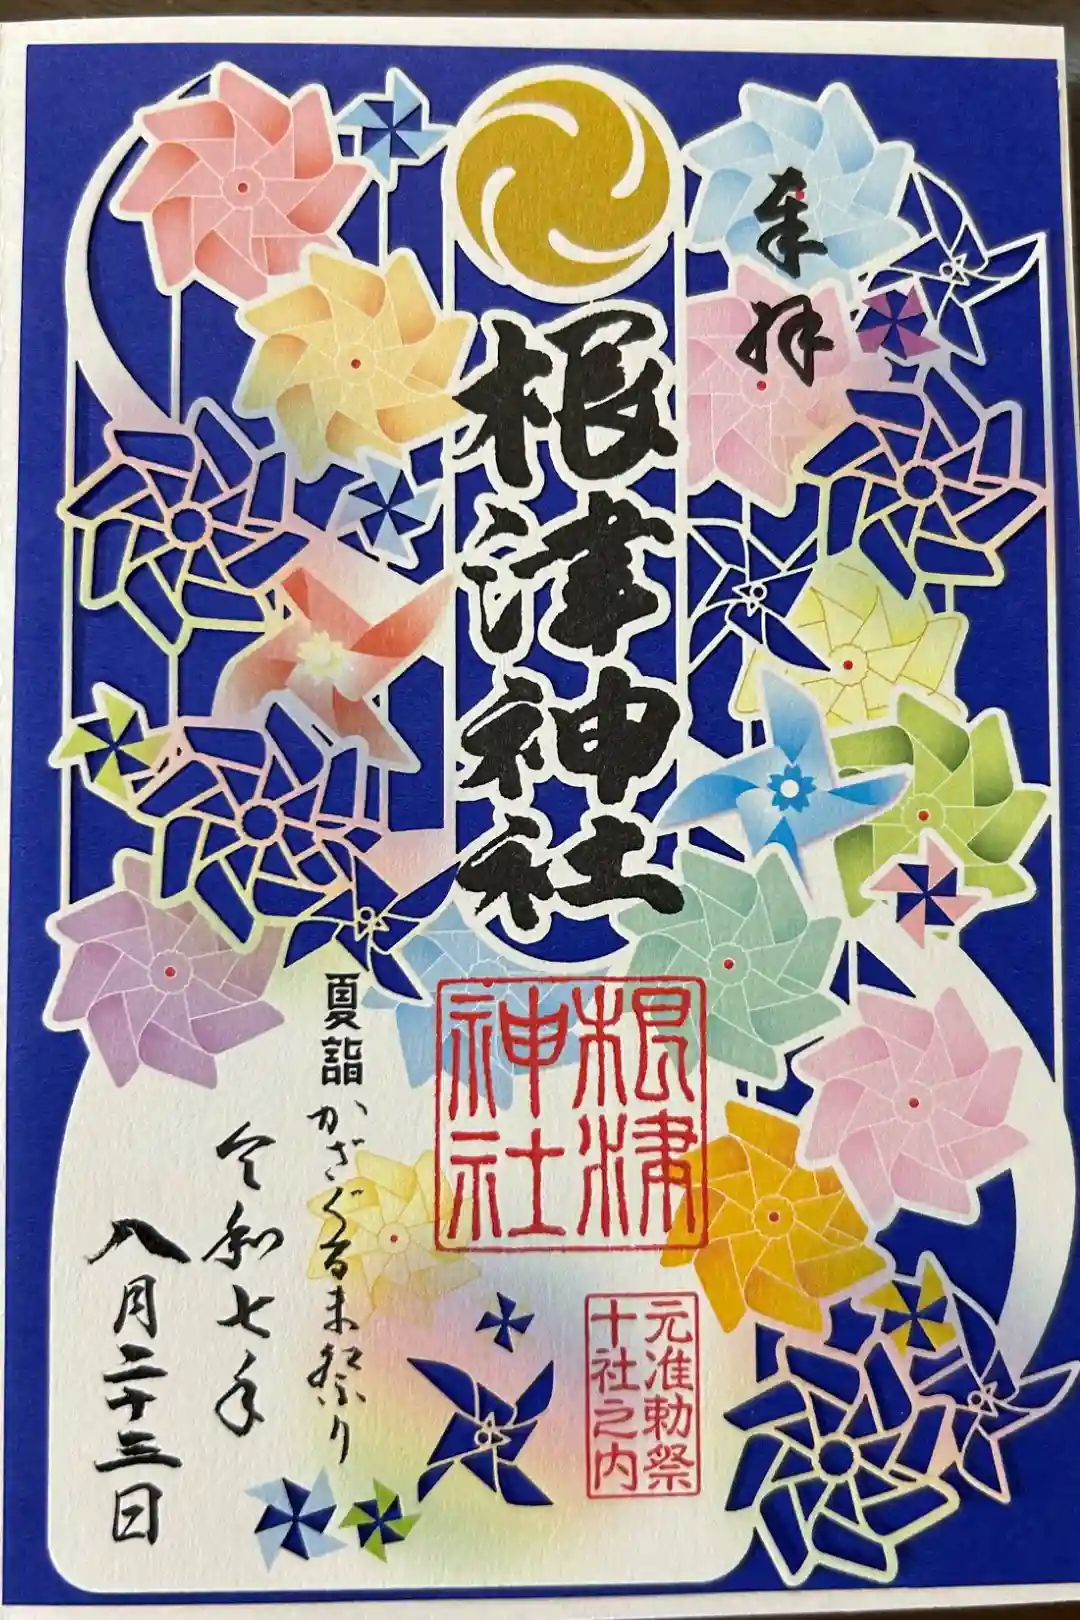 奉拝
根津神社
根津
神社
元准勅祭
十社之内
夏詣 かざぐるま祭り
令和七年
八月二十三日